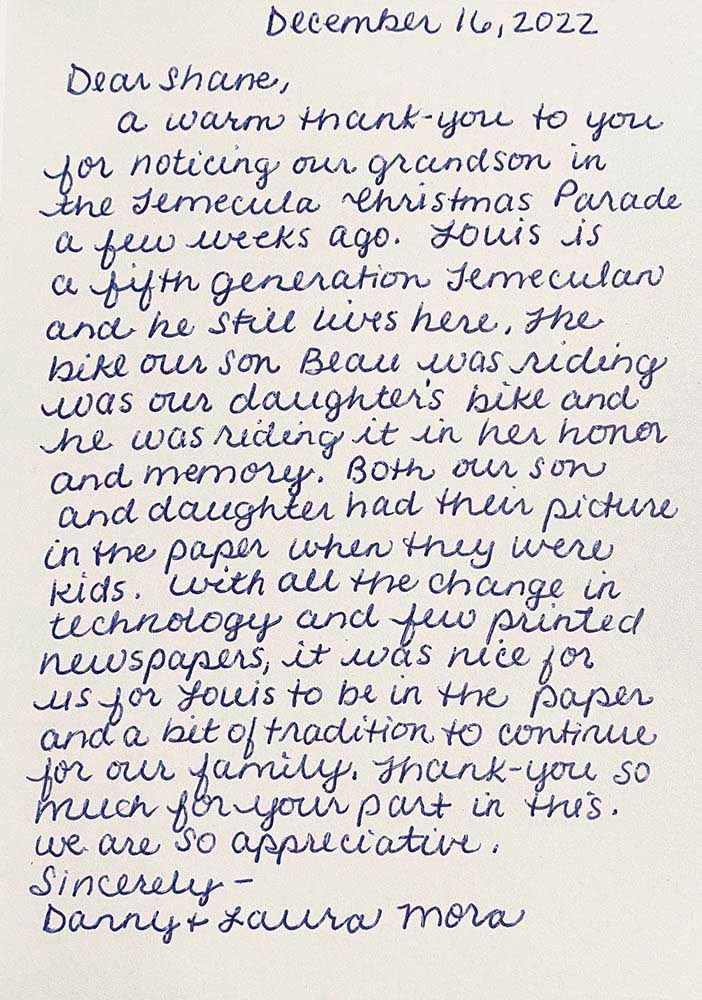 December 16, 2022
Dear Shane,
a warm thank-you to you
for noticing our grandson in
the Temecula Christmas Parade
a few weeks ago. Louis is
a fifth generation Temeculan
and he still lives here. The
bike our son Beau was riding
was our daughter's bike and
he was riding it in her honor
and memory. Both our son
and daughter had their picture
in the paper when they were
kids. With all the change in
technology and few printed
newspapers, it was nice for
us for Louis to be in the paper
and a bit of tradition to continue
for our family. Thank-you so
much for your part in this.
we are so appreciative.
Sincerely -
Danny + Laura Mora